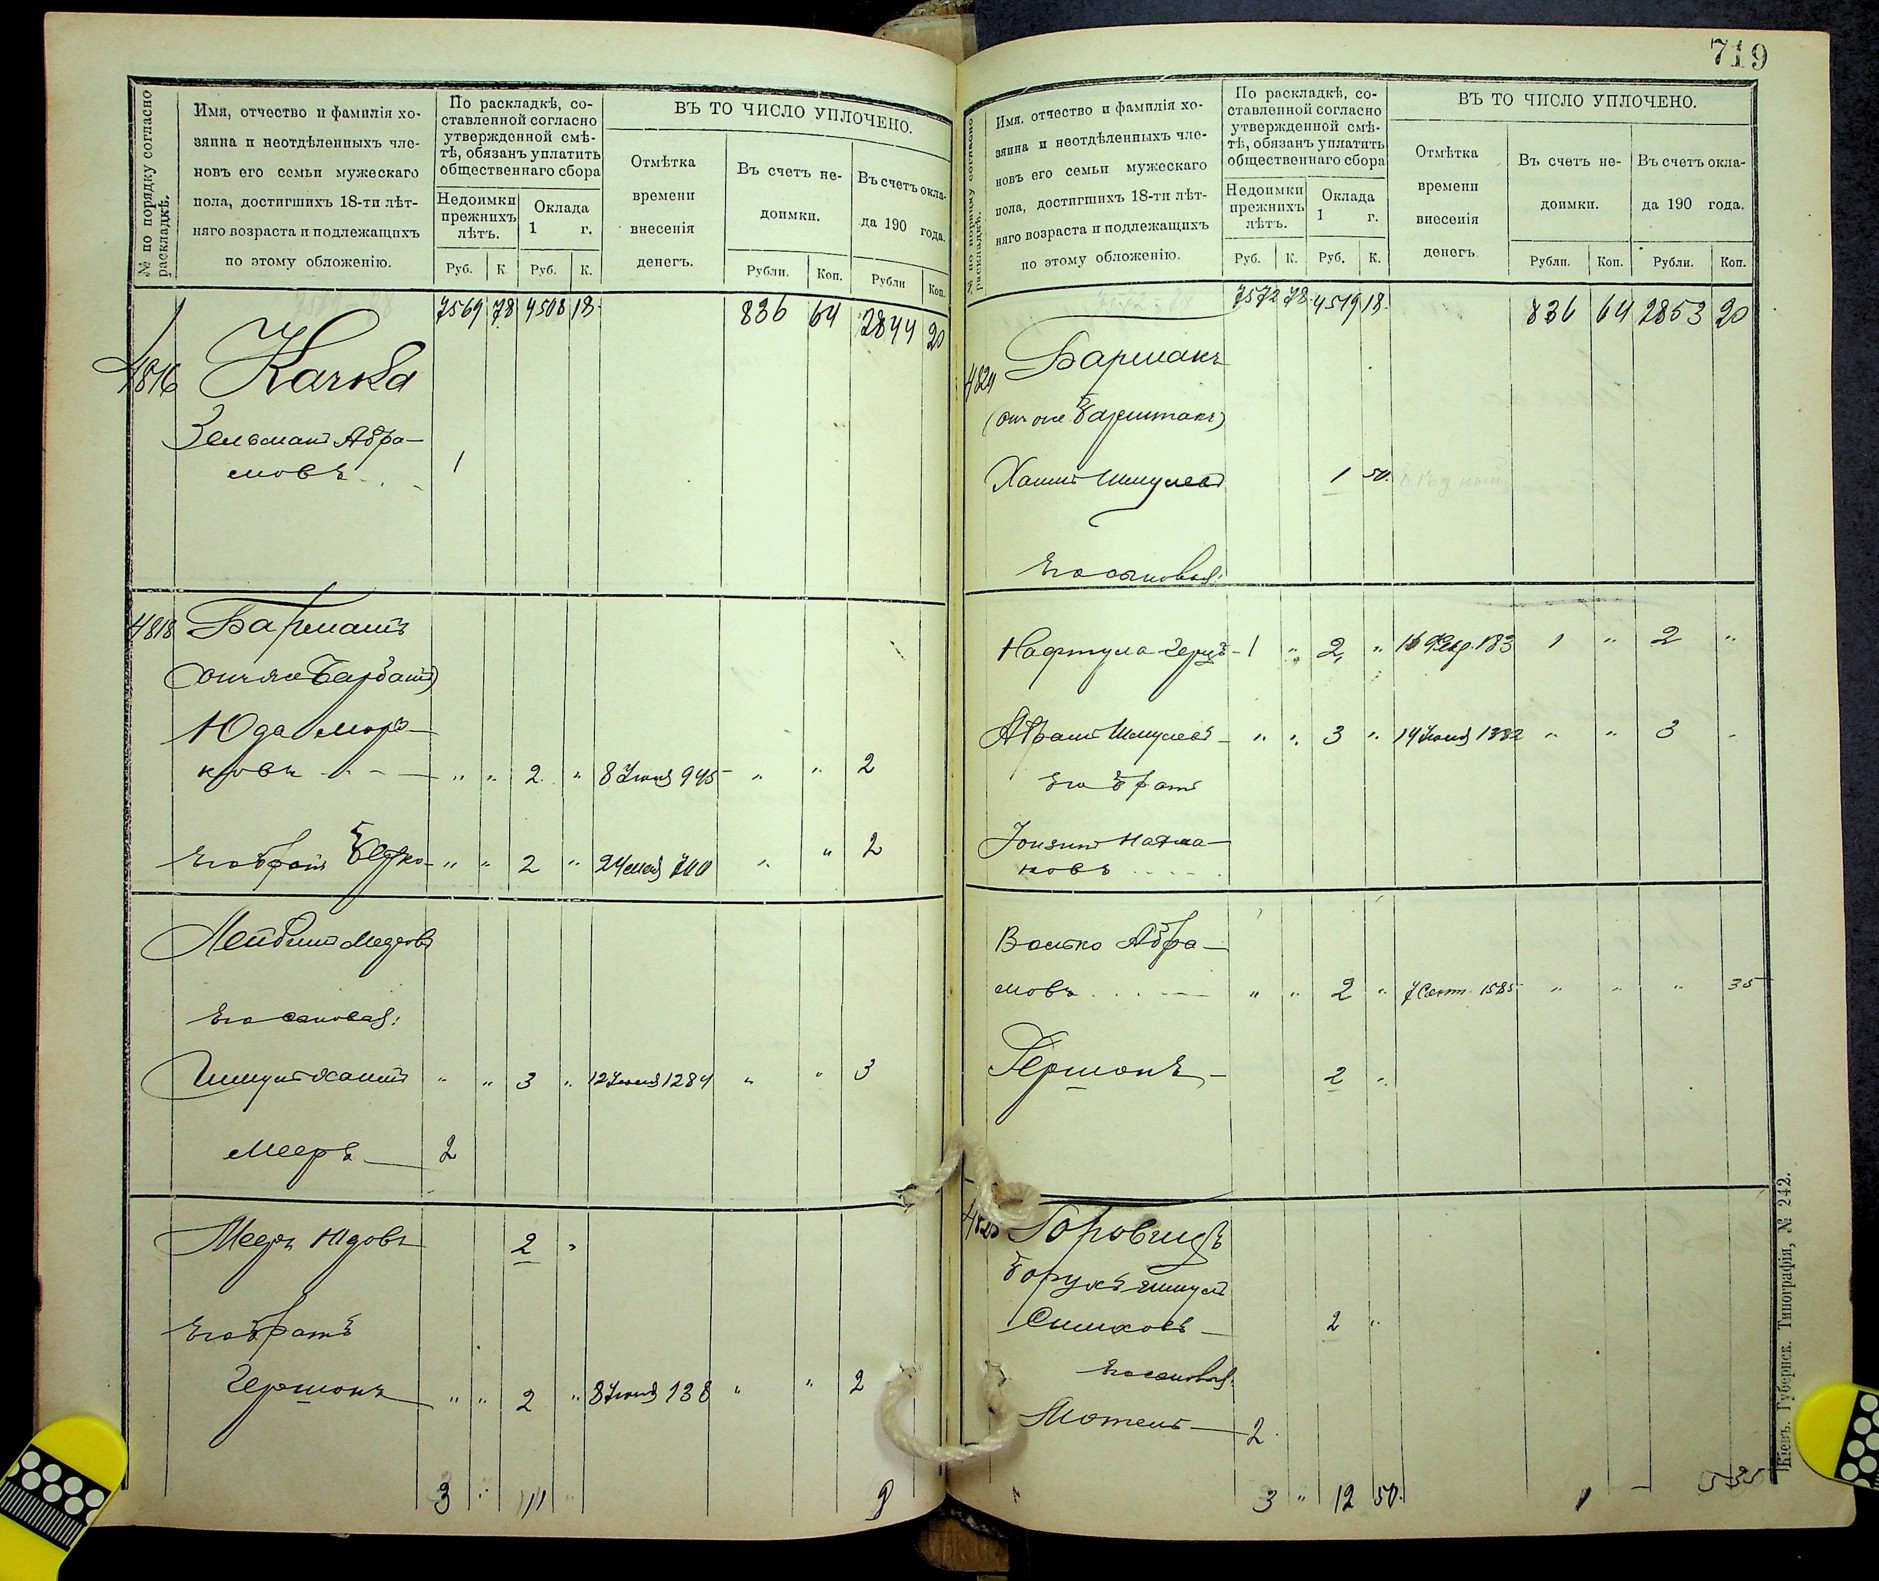 719
№ по порядку согласно раскладкѣ.
Имя, отчество и фамилія хо-
зяина и неотдѣленныхъ чле-
новъ его семьи мужескаго
пола, достигшихъ 18-ти лѣт-
няго возраста и подлежащихъ
по этому обложенію.
По раскладкѣ, со-
ставленной согласно
утвержденной смѣ-
тѣ, обязанъ уплатить
общественнаго сбора
Недоимки
прежнихъ
лѣтъ.
Оклада
1 г.
Руб. К. Руб. К.
ВЪ ТО ЧИСЛО УПЛОЧЕНО.
Отмѣтка
времени
внесенія
денегъ.
Въ счетъ не-
доимки.
Въ счетъ окла-
да 190 года.
Рубли. Коп. Рубли Коп.
7569 78 4508 18 836 64 2844 20
4816 Качка
Зельманъ Абра-
мовъ 1
4818 Барманъ
(онъ же Барбанъ)
Юда Морд-
ковъ " " 2 " 8 Іюня 945 " " 2
Его братъ " " 2 " 24 700 " " 2
Лейбишъ Мееровъ
Его сыновья:
Шмуль Хаимъ " " 3 " 12 Іюня 1284 " " 3
Мееръ 2
Мееръ Юдовъ 2 "
Его братъ
Гершонъ " " 2 " 8 Іюня 138 " " 2
3 " 11 " 9
№ по порядку согласно раскладкѣ.
Имя, отчество и фамилія хо-
зяина и неотдѣленныхъ чле-
новъ его семьи мужескаго
пола, достигшихъ 18-ти лѣт-
няго возраста и подлежащихъ
по этому обложенію.
По раскладкѣ, со-
ставленной согласно
утвержденной смѣ-
тѣ, обязанъ уплатить
общественнаго сбора
Недоимки
прежнихъ
лѣтъ.
Оклада
1 г.
Руб. К. Руб. К.
ВЪ ТО ЧИСЛО УПЛОЧЕНО.
Отмѣтка
времени
внесенія
денегъ.
Въ счетъ не-
доимки.
Въ счетъ окла-
да 190 года.
Рубли. Коп. Рубли. Коп.
7572 78 4519 18 836 64 2853 20
4824 Бармакъ
(онъ же Барштакъ)
Хаимъ Шмулев 1 50
Его сыновья:
Нафтула Герцъ 1 " 2 " 16 183 1 " 2 "
Абрамъ Шмулевъ " " 3 " 14 Іюня 1332 " " 3
Его братъ
Волько Абра-
мовъ " " 2 " 7 Сент. 1585 " " " 35
Гершонъ 2 "
Горовицъ
Борухъ Шмуль
Симховъ 2 "
Его сыновья:
Мотель 2
3 " 12 50 1 - 5 35
Кіевъ. Губернск. Типографія, № 242.